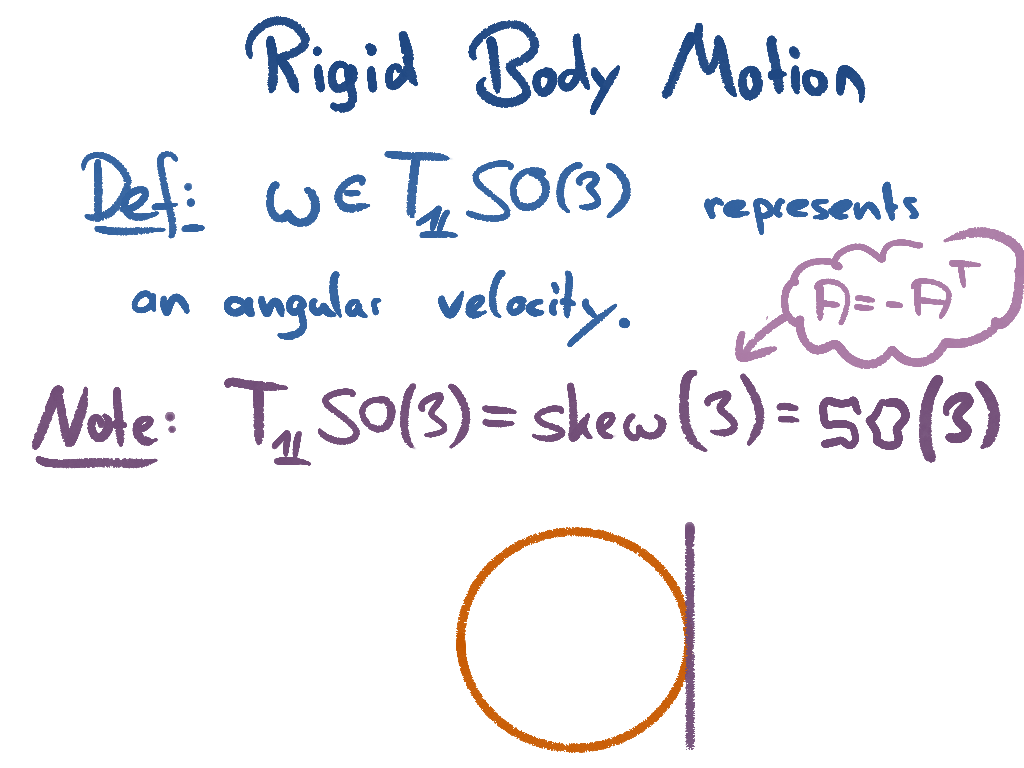 Rigid Body Motion
Def: ω ∈ T_𝟙 SO(3) represents
an angular velocity.
A = -A^T
Note: T_𝟙 SO(3) = skew(3) = 𝔰𝔬(3)